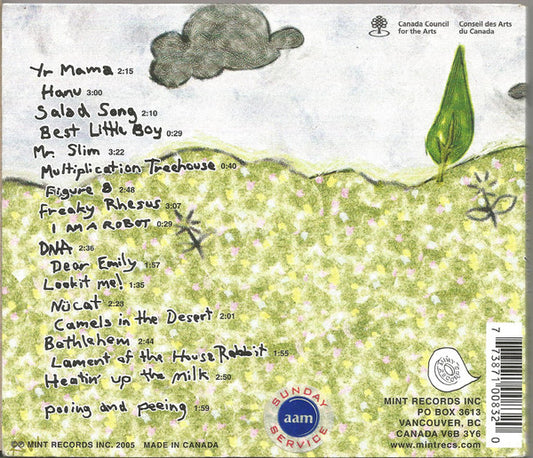 Canada Council
for the Arts
Conseil des Arts
du Canada
Yr Mama 2:15
Hanu 3:00
Salad Song 2:10
Best Little Boy 0:29
Mr. Slim 3:22
Multiplication Treehouse 0:40
Figure 8 2:48
Freaky Rhesus 3:07
I M A ROBOT 0:29
DNA 2:36
Dear Emily 1:57
Lookit me! 1:35
Nücat 2:23
Camels in the Desert 2:01
Bethlehem 2:44
Lament of the House Rabbit 1:55
Heatin' up the Milk 2:50
pooing and peeing 1:59
SUNDAY
aam
SERVICE
MINT RECORDS INC
PO BOX 3613
VANCOUVER, BC
CANADA V6B 3Y6
www.mintrecs.com
7 73871 00832 0
©℗ MINT RECORDS INC. 2005 MADE IN CANADA